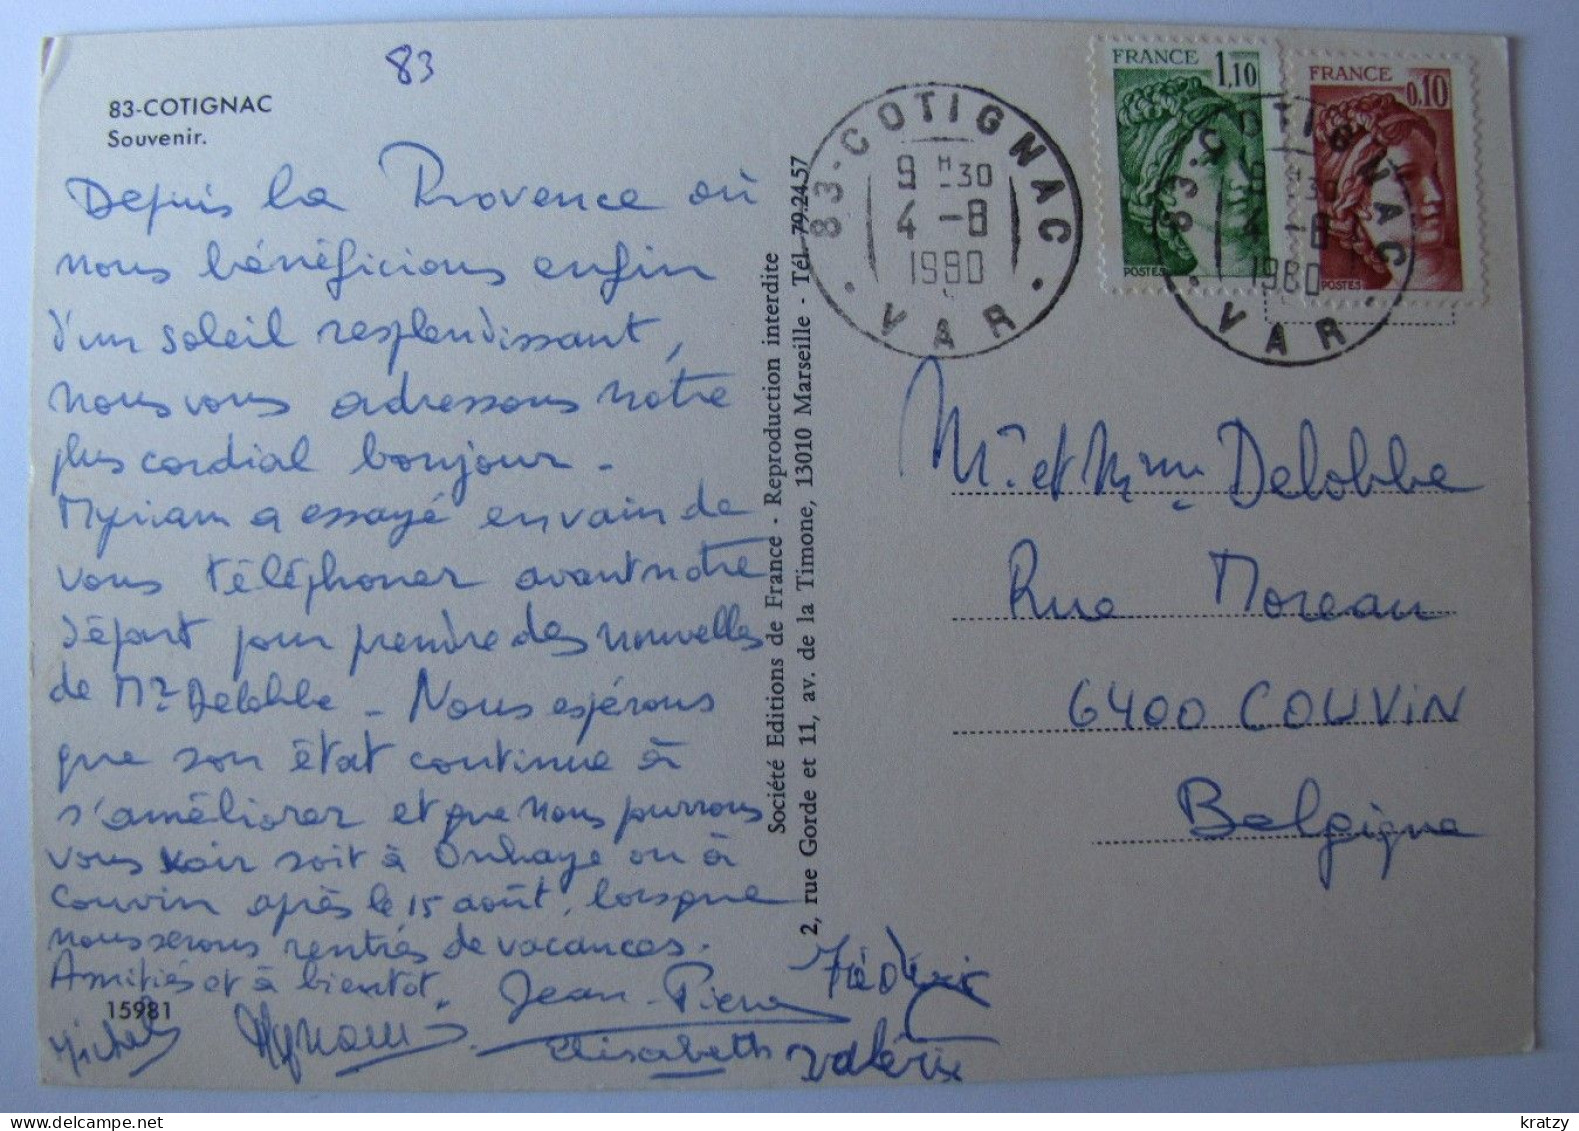 83
83-COTIGNAC
Souvenir.
Depuis la Provence où
nous bénéficions enfin
d'un soleil resplendissant,
nous vous adressons notre
plus cordial bonjour.
Myriam a essayé en vain de
vous téléphoner avant notre
départ pour prendre des nouvelles
de Mr Delobbe. Nous espérons
que son état continue à
s'améliorer et que nous pourrons
vous voir soit à Onhaye ou à
Couvin après le 15 août, lorsque
nous serons rentrés de vacances.
Amitiés et à bientôt.
15981
Jean-Pierre
Frédéric
Michel
Elisabeth
Valérie
Société Editions de France - Reproduction interdite
2, rue Gorde et 11, av. de la Timone, 13010 Marseille - Tél. 79.24.57
83-COTIGNAC
9 H 30
4-8
1980
VAR
FRANCE
1,10
POSTES
FRANCE
0,10
POSTES
83-COTIGNAC
9 H 30
4-8
1980
VAR
Mr. et Mme Delobbe
Rue Moreau
6400 COUVIN
Belgique
kratzy